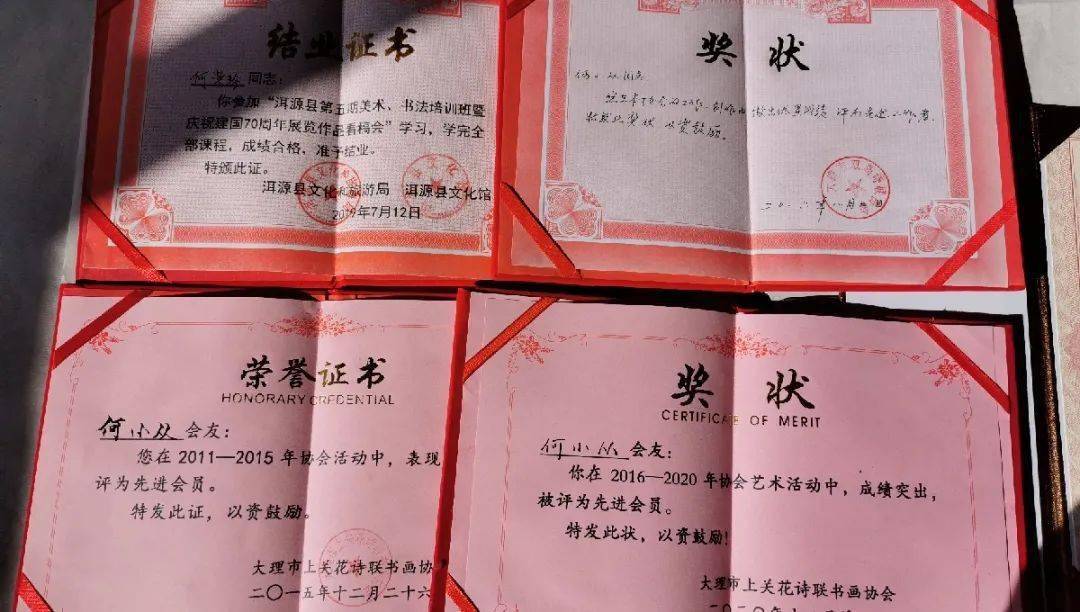 结业证书
同志：
你参加“洱源县第五期美术、书法培训班暨
庆祝建国70周年展览作品看稿会”学习，学完全
部课程，成绩合格，准予结业。
特颁此证。
洱源县文化和旅游局 洱源县文化馆
2019年7月12日
奖状
以资鼓励。
荣誉证书
HONORARY CREDENTIAL
何小从会友：
您在2011—2015年协会活动中，表现
评为先进会员。
特发此证，以资鼓励。
大理市上关花诗联书画协
二〇一五年十二月二十六
奖状
CERTIFICATE OF MERIT
何小从会友：
你在2016—2020年协会艺术活动中，成绩突出，
被评为先进会员。
特发此状，以资鼓励！
大理市上关花诗联书画协会